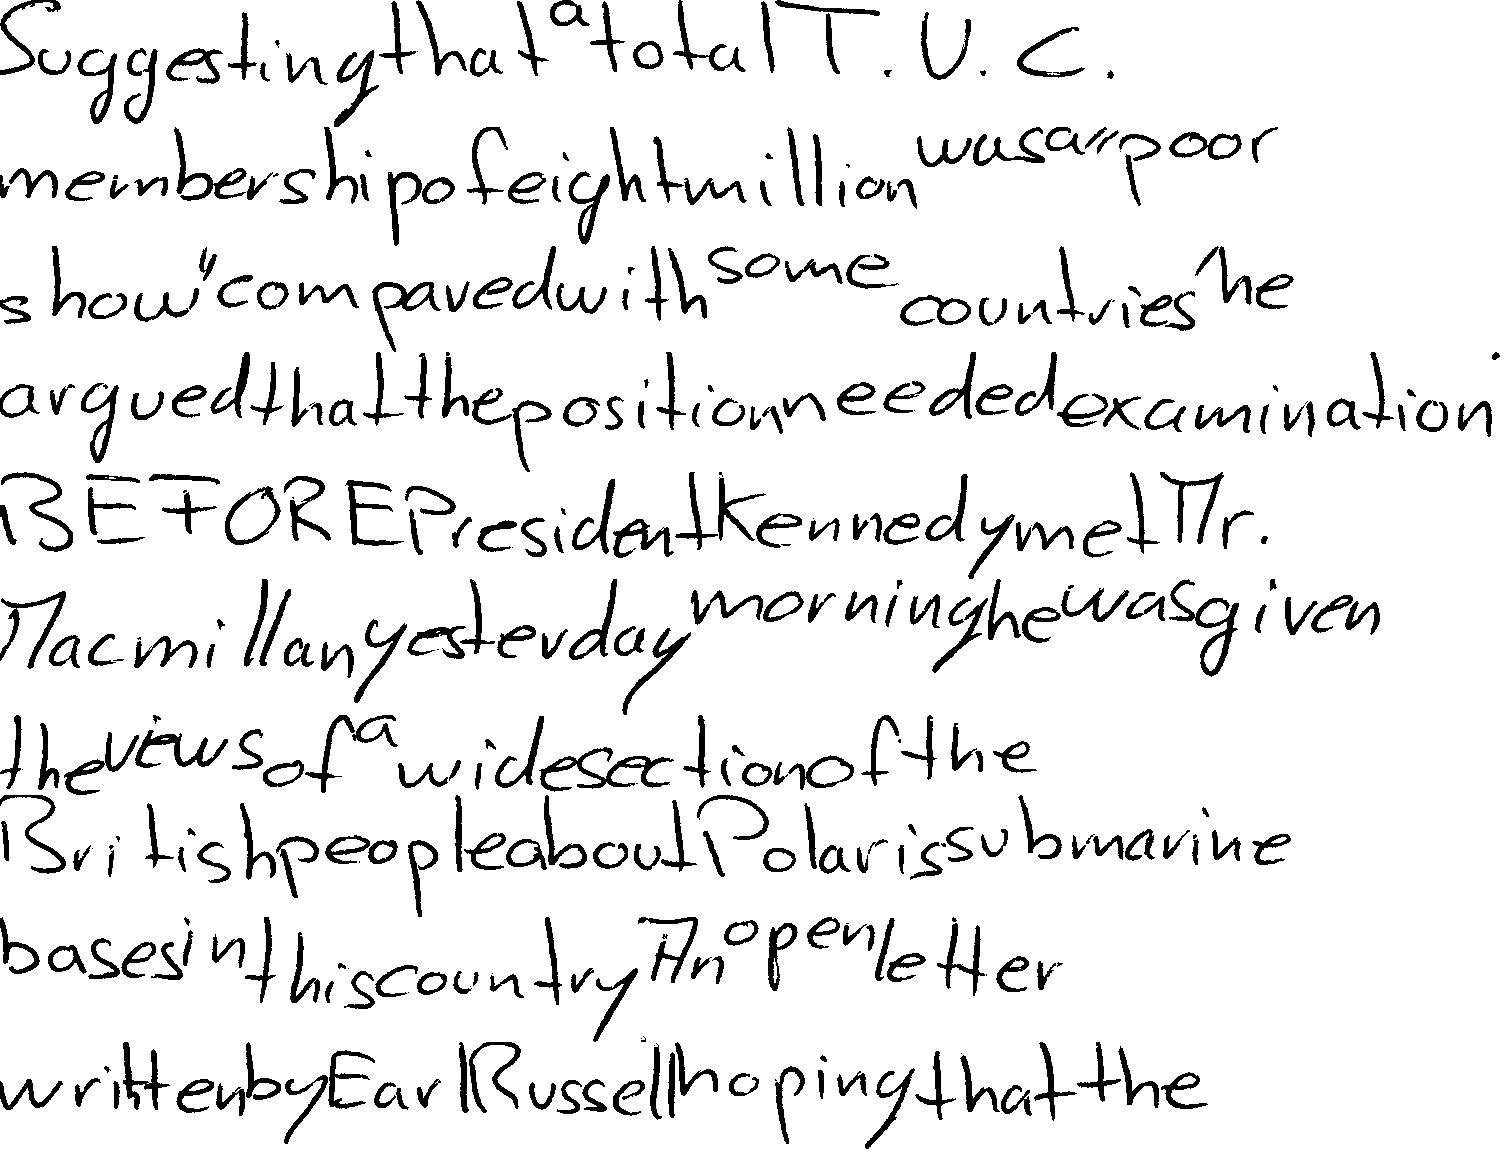 Suggesting that a total T. U. C.
membership of eight million was a "poor
show" compared with some countries he
argued that the position needed examination.
BEFORE President Kennedy met Mr.
Macmillan yesterday morning he was given
the views of a wide section of the
British people about Polaris submarine
bases in this country An open letter
written by Earl Russell hoping that the